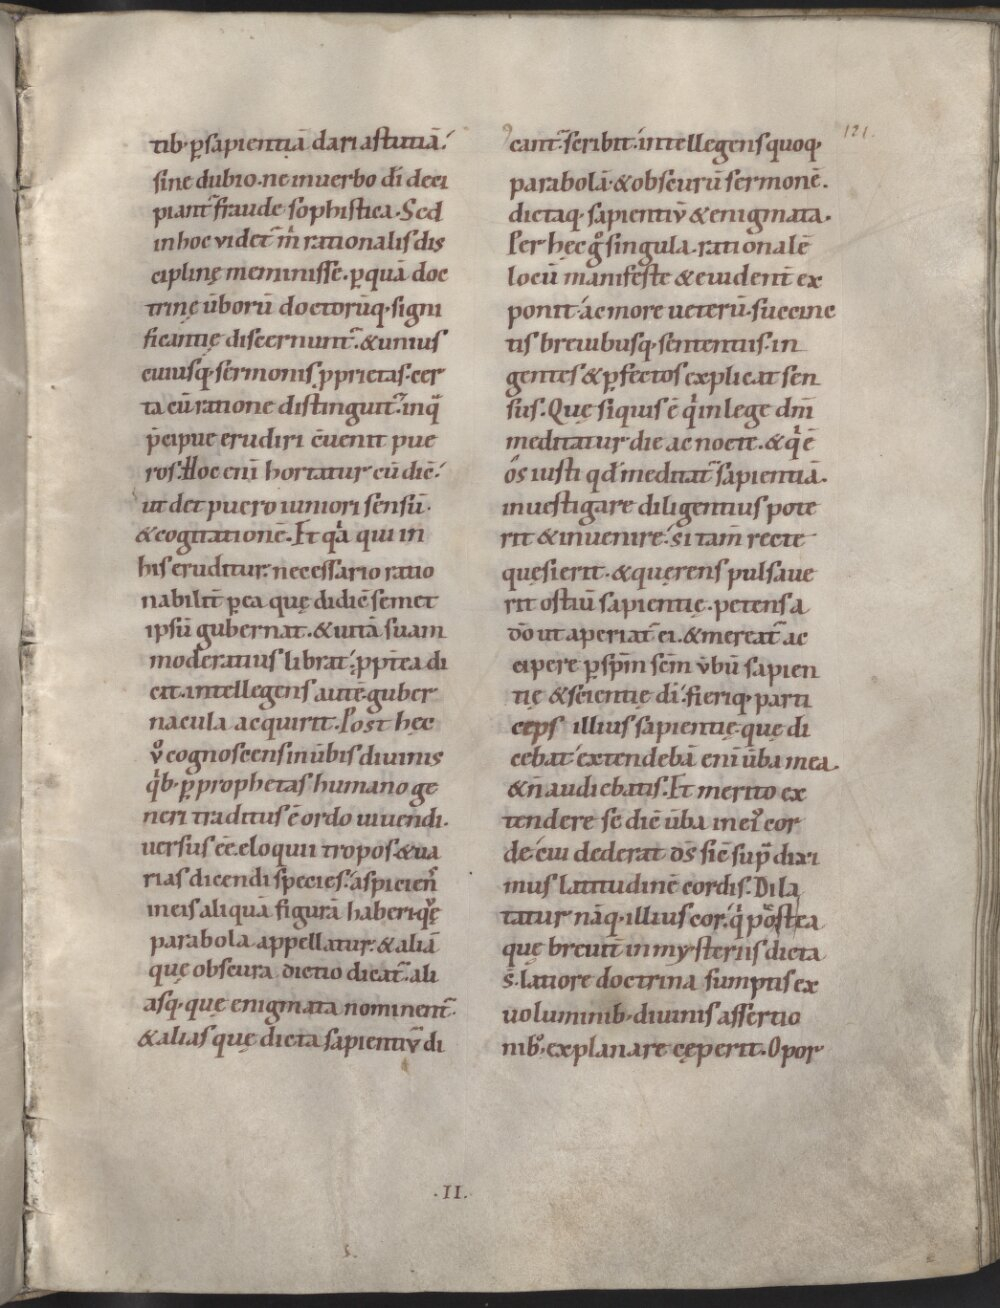 tib· ꝑsapientiā dari astutiā.
sine dubio· ne in uerbo dī deci
piant᷑ fraude sophistica. Sed
in hoc videt᷑ m̄ rationalis dis
ciplinę meminisse. ꝑ quā doc
trinę ūborū doctorūq· signi
ficantię discernunt᷑. & unius
cuiusq· sermonis ꝓprietas· cer
ta cū ratione distinguit᷑. in qͣ
p̄cipue erudiri c̄uenit pue
ros. Hoc enī hortatur cū diē
ut det puero iuniori sensū·
& cogitationē. Et qͥa qui in
his eruditur· necessario ratio
nabilit̄ ꝑ ea quę didic̄ semet
ipsū gubernat· & uitā suam
moderatius librat· ꝓpt̄ea di
cit· intellegens autē guber
nacula acquirit. Post hęc
v̊ cognoscens in ūbis diuinis
qͥb· ꝑ prophetas humano ge
neri traditus ē ordo uiuendi·
uersus c̄c̄ eloquii tropos· & ua
rias dicendi species. aspiciens
in eis aliquā figurā haberi· quę
parabola appellatur· & aliā
quę obscura dictio dicat᷑· ali
asq· quę enigmata nominent᷑·
& alias quę dicta sapientiv̄ di
cant᷑· scribit· intellegens quoq·
parabolā· & obscurū sermonē.
dictaq· sapientiv̄ & enigmata·
Per hęc g̊ singula· rationalē
locū manifeste & euident̄ ex
ponit· ac more ueterū· succinc
tis breuibusq· sententiis· in
gentes & ꝑfectos explicat sen
sus. Quę siquis ē qͥ in lege dn̄i
meditatur die ac nocte· & qͥ ē
ōs iusti qđ meditat᷑ sapientiā·
inuestigare diligentius pote
rit & inuenire. si tam̄ recte
quęsierit· & quęrens pulsaue
rit ostiū sapientię· petens a
dō ut aperiat᷑ ei· & mereat᷑ ac
cipere ꝑ sp̄m sc̄m v̄bū sapien
tię & scientię dī. fieriq· parti
ceps illius sapientię· quę di
cebat. extendebā enī ūba mea·
& n̄ audiebatis. Et merito ex
tendere se dic̄ ūba in ei cor
de· cui dederat ds̄ sic̄ sup̄ dixi
mus latitudinē cordis. Dila
tatur nāq· illius cor. qͥ postea
quę breuit̄ in mysteriis dicta
s̄· latiore doctrina sumptis ex
uoluminib· diuinis assertio
nibꝰ· explanare cęperit. Opor
121.
·II·